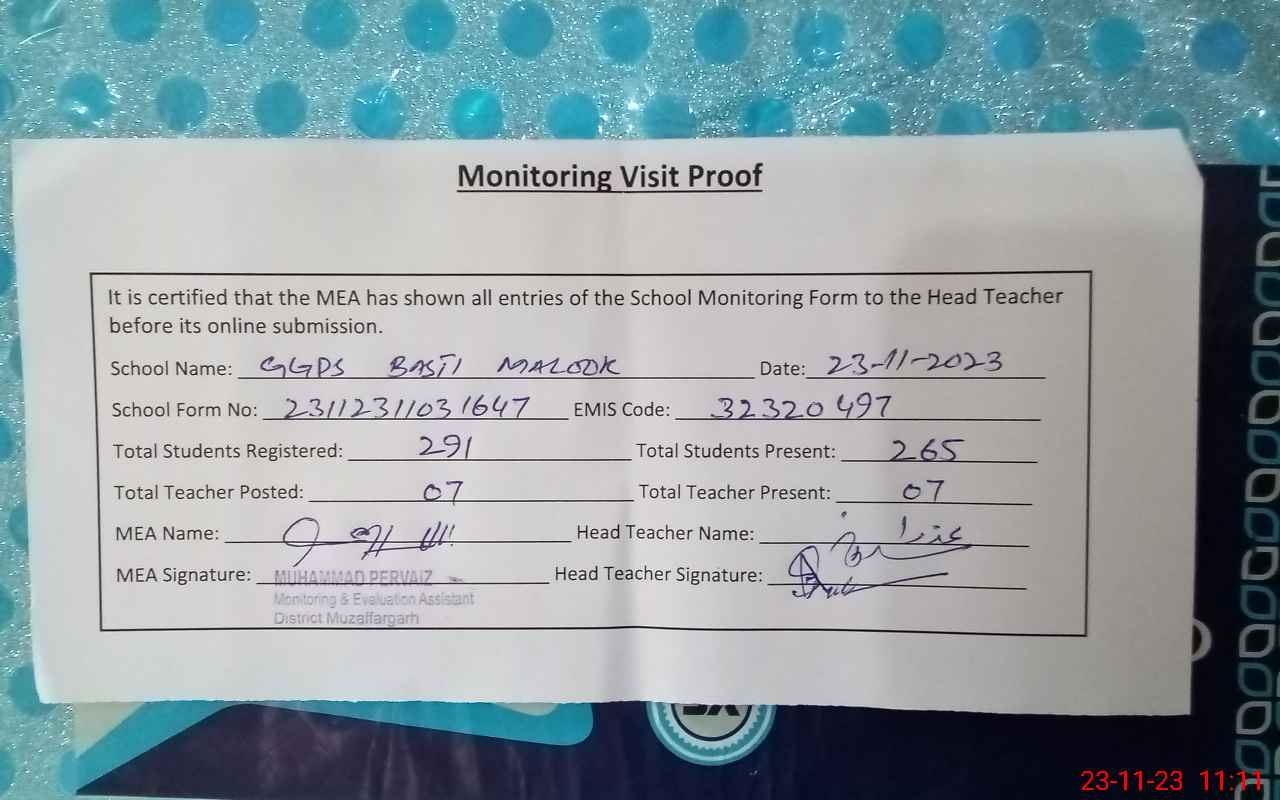 Monitoring Visit Proof
It is certified that the MEA has shown all entries of the School Monitoring Form to the Head Teacher
before its online submission.
School Name: GGPS BASTI MALOOK Date: 23-11-2023
School Form No: 23112311031647 EMIS Code: 32320497
Total Students Registered: 291 Total Students Present: 265
Total Teacher Posted: 07 Total Teacher Present: 07
MEA Name: Head Teacher Name: عذرا
MEA Signature: MUHAMMAD PERVAIZ Head Teacher Signature:
Monitoring & Evaluation Assistant
District Muzaffargarh
23-11-23 11:11